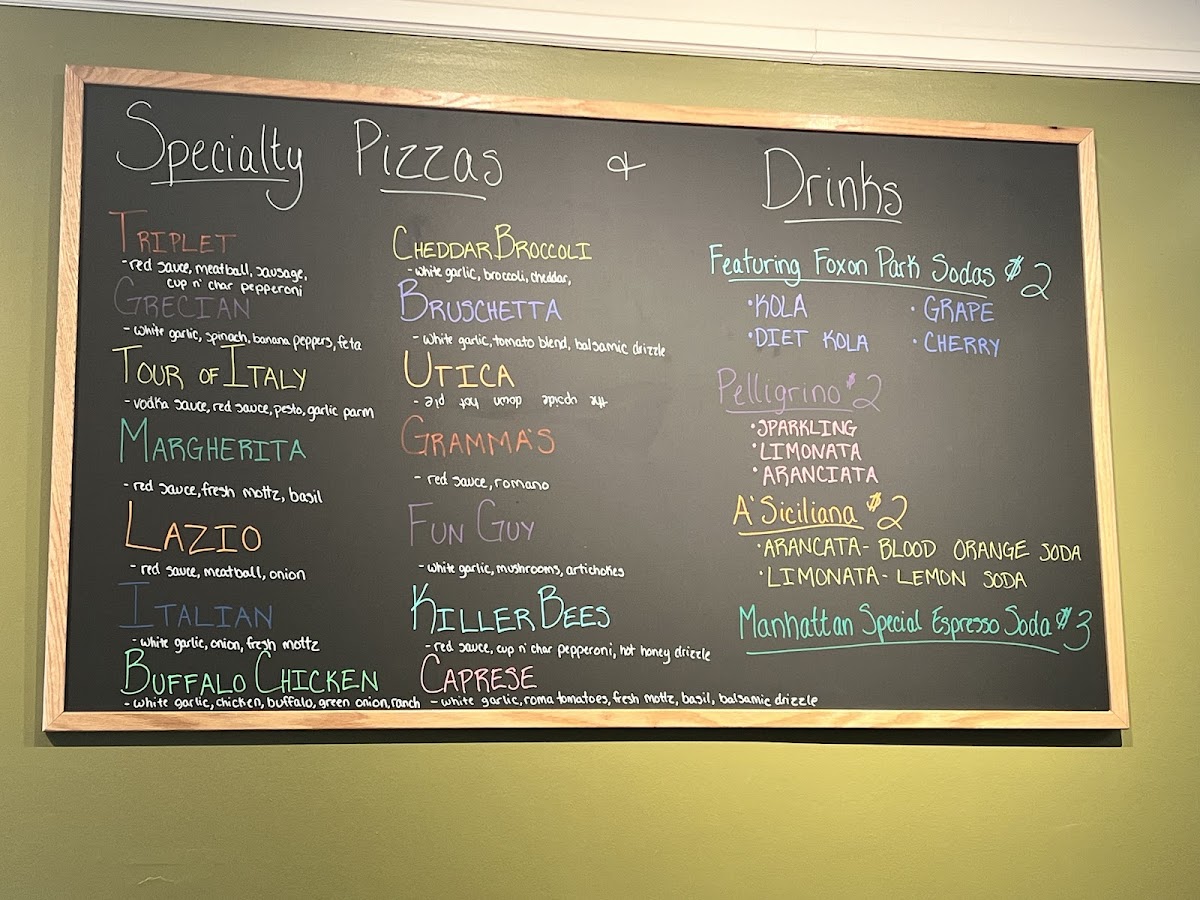 Specialty Pizzas & Drinks
TRIPLET
- red sauce, meatball, sausage,
cup n' char pepperoni
GRECIAN
- white garlic, spinach, banana peppers, feta
TOUR OF ITALY
- vodka sauce, red sauce, pesto, garlic parm
MARGHERITA
- red sauce, fresh mottz, basil
LAZIO
- red sauce, meatball, onion
ITALIAN
- white garlic, onion, fresh mottz
BUFFALO CHICKEN
- white garlic, chicken, buffalo, green onion, ranch
CHEDDAR BROCCOLI
- white garlic, broccoli, cheddar,
BRUSCHETTA
- white garlic, tomato blend, balsamic drizzle
UTICA
- the upside down hot pie
GRAMMA'S
- red sauce, romano
FUN GUY
- white garlic, mushrooms, artichokes
KILLER BEES
- red sauce, cup n' char pepperoni, hot honey drizzle
CAPRESE
- white garlic, roma tomatoes, fresh mottz, basil, balsamic drizzle
Featuring Foxon Park Sodas $2
• KOLA
• DIET KOLA
• GRAPE
• CHERRY
Pelligrino $2
• SPARKLING
• LIMONATA
• ARANCIATA
A'Siciliana $2
• ARANCATA - BLOOD ORANGE SODA
• LIMONATA - LEMON SODA
Manhattan Special Espresso Soda $3